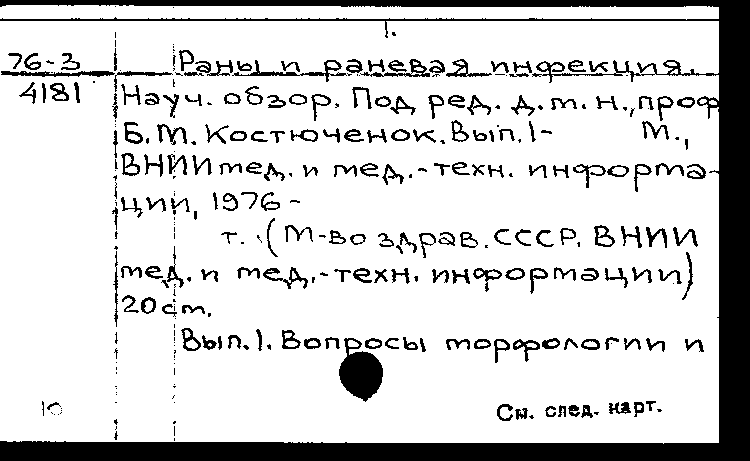 1.
76-3 Раны и раневая инфекция.
4181 Науч. обзор. Под ред. д.т.н., проф
Б.М. Костюченок. Вып. 1- М.,
ВНИИ мед. и мед.-техн. информа-
ции, 1976 -
т. (М-во здрав. СССР. ВНИИ
мед. и мед.-техн. информации)
20 ст.
Вып. 1. Вопросы морфологии и
10 См. след. карт.